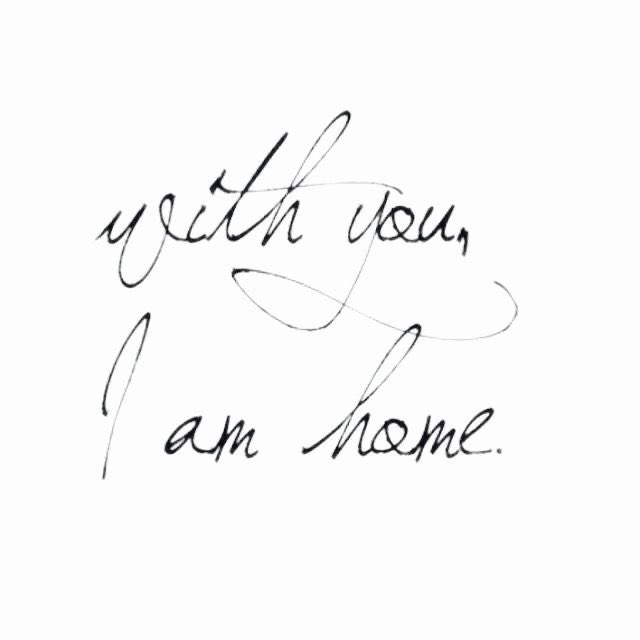 with you,
I am home.